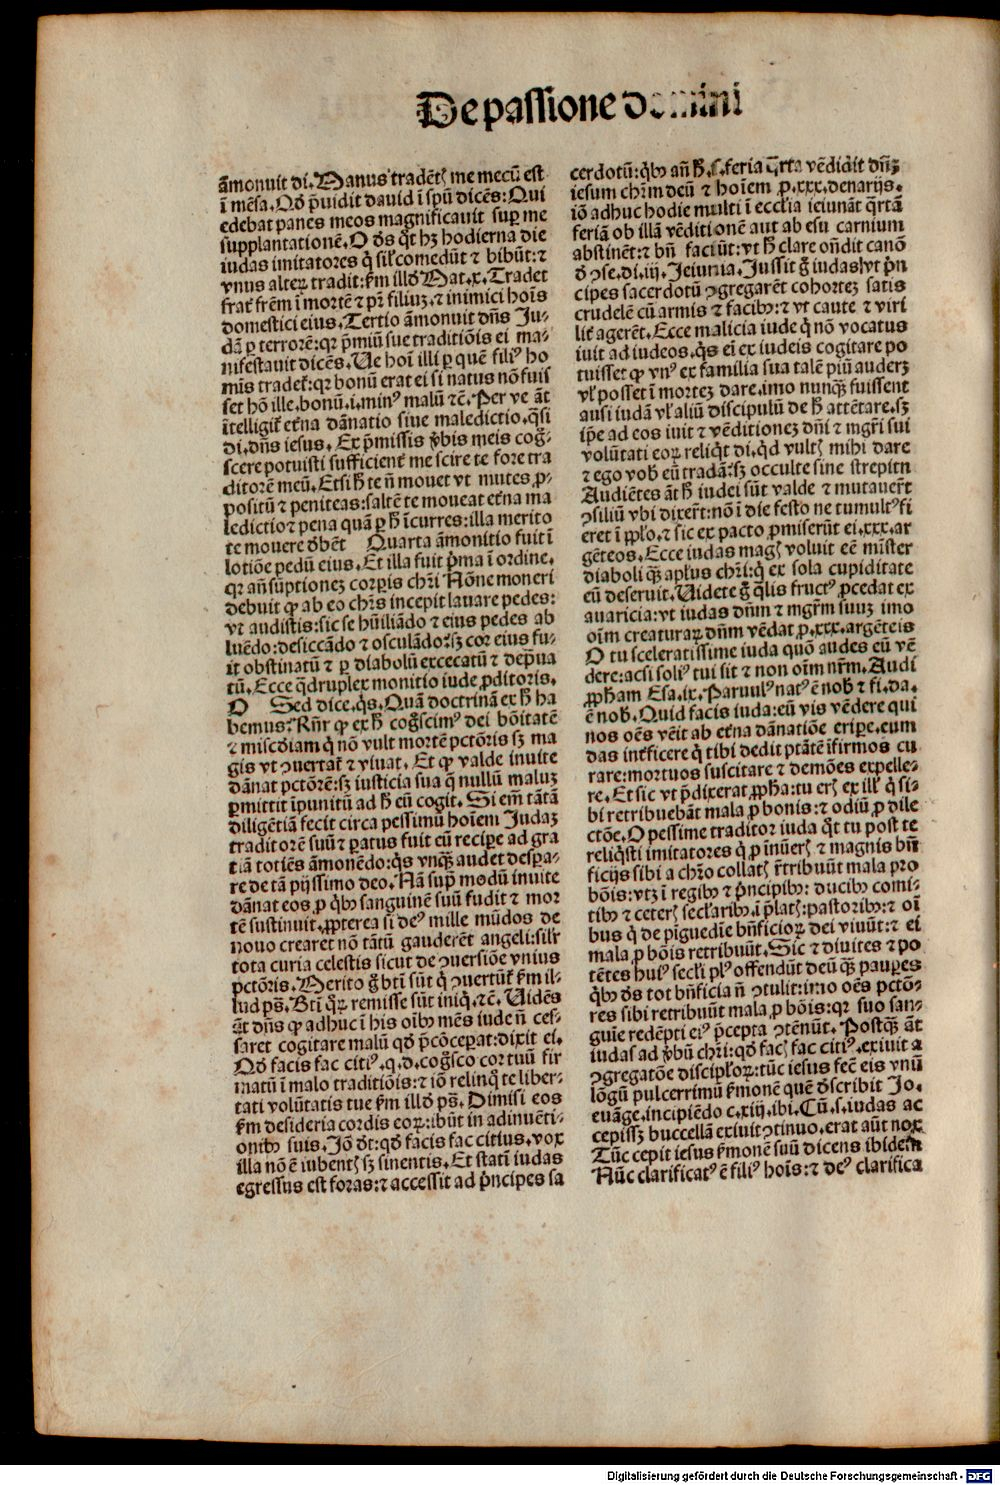 De passione domini
āmonuit di. Manus tradētꝭ me mecū est
ī mēsa. Qď p̄uidit dauid ī spū dicēs: Qui
edebat panes meos magnificauit suꝑ me
supplantationē. O ďs q̄t hꝫ hodierna die
iudas imitatores q̄ sil̕ comedūt ⁊ bibūt: ⁊
vnus alteꝝ tradit: ẜm illď Mat. x. Tradet
frat̕ frēm ī mortē ⁊ pr̄ filiuꝫ. ⁊ inimici hoīs
domestici eius. Tertio āmonuit dn̄s Ju-
dā ꝑ terrorē: qꝛ p̄miū sue traditiōis ei ma-
nifestauit dicēs. Ue hoī illi ꝑ quē filiꝰ ho
mīs tradet̕: qꝛ bonū erat ei si natus nō fuis
set hō ille. bonū. i. minꝰ malū ⁊c̄. Per ve āt
ītelligit̕ et̕na dānatio siue maledictio. q̄si
di. dn̄s iesus. Ex p̄missis v̕bis meis cog̕-
scere potuisti sufficient̕ me scire te fore tra
ditorē meū. Etsi h̄ te n̄ mouet vt mutes ꝓ-
positū ⁊ peniteas: saltē te moueat et̕na ma
ledictio ⁊ pena quā ꝑ h̄ īcurres: illa merito
te mouere ďbēt Quarta āmonitio fuit ī
lotiōe pedū eius. Et illa fuit p̄ma ī ordine.
qꝛ añ sūptionez corꝑis chr̄i Nōne moneri
debuit ꝙ ab eo chr̄s incepit lauare pedes:
vt audistis: sic se hūiliādo ⁊ eius pedes ab
luēdo: desiccādo ⁊ osculādo: sꝫ cor eius fu-
it obstinatū ⁊ ꝑ diabolū excecatū ⁊ dep̄ua
tū. Ecce q̄druplex monitio iude ꝓditoris.
O Sed dice. q̄s. Quā doctrinā ex h̄ ha
bemus: Rn̄r ꝙ ex h̄ cog̕scimꝰ dei bōitatē
⁊ misc̄diam q̄ nō vult mortē pctōris sꝫ ma
gis vt ꝯuertat̕ ⁊ viuat. Et ꝙ valde inuite
dānat pctōrē: sꝫ iusticia sua q̄ nullū maluꝫ
ꝑmittit īpunitū ad h̄ eū cogit. Si em̄ tātā
diligētiā fecit circa pessimū hoīem Judaꝫ
traditorē suū ⁊ ꝑatus fuit eū reciꝑe ad gra
tiā totiēs āmonēdo: q̄s vnqꝫ̄ audet despa-
re de tā pijssimo deo. Nā sup̄ modū inuite
dānat eos. ꝓ q̄bꝫ sanguinē suū fudit ⁊ mor
tē sustinuit. ꝓpterea si deꝰ mille mūdos de
nouo crearet nō tātū gauderēt angeli: sil̕r
tota curia celestis sicut de ꝯuersiōe vnius
pctōris. Merito g̕ bt̄i sūt q̄ ꝯuertūt̕ ẜm il-
lud ps̄. Bt̄i q̄ꝝ remisse sūt iniq̄. ⁊c̄. Uidēs
āt dn̄s ꝙ adhuc ī his oībꝫ mēs iude n̄ ces-
saret cogitare malū qď p̄cōceꝑat: dixit ei.
Qď facis fac citiꝰ. q. d. cog̕sco cor tuū fir
matū ī malo traditiōis: ⁊ iō relinq̄ te liber-
tati volūtatis tue ẜm illď ps̄. Dimisi eos
ẜm desideria cordis eoꝝ: ibūt in adinuēti-
onibꝫ suis. Jō ďt: qď facis fac citius. vox
illa nō ē iubentꝭ sꝫ sinentis. Et statī iudas
egressus est foras: ⁊ accessit ad p̄ncipes sa
cerdotū: q̄bꝫ añ h̄. s. feria q̄rta vēdidit dn̄ꝫ
iesum chr̄m deū ⁊ hoīem ꝓ. xxx. denarijs.
iō adhuc hodie multi ī eccl̕ia ieiunāt q̄rtā
feriā ob illā vēditionē aut ab esu carnium
abstinēt: ⁊ bn̄ faciūt: vt h̄ clare oñdit canō
ď ꝯse. di. iij. Jeiunia. Jussit g̕ iudas vt p̄n
cipes sacerdotū ꝯgregarēt cohortez satis
crudelē cū armis ⁊ facibꝫ: ⁊ vt caute ⁊ viri
lit̕ agerēt. Ecce malicia iude q̄ nō vocatus
iuit ad iudeos. q̄s ei̅ ex iudeis cogitare po
tuisset ꝙ vnꝰ ex familia sua talē piū auderꝫ
vl̕ posset ī mortez dare. imo nunqꝫ̄ fuissent
ausi iudā vl̕ aliū discipulū de h̄ attētare. sꝫ
ip̄e ad eos iuit ⁊ vēditionez dn̄i ⁊ mgr̄i sui
volūtati eoꝝ reliq̄t di. q̄d vultꝭ mihi dare
⁊ ego vob̕ eū tradā: sꝫ occulte sine strepitu
Audiētes āt h̄ iudei sūt valde ⁊ mutauer̄t
ꝯsiliū vbi dixer̄t: nō ī die festo ne tumultꝰ fi
eret ī ppl̕o. ⁊ sic ex pacto ꝓmiserūt ei. xxx. ar
gēteos. Ecce iudas magꝭ voluit eē mīster
diaboli qꝫ̄ apl̕us chr̄i: q̄ ex sola cupiditate
eū deseruit. Uidete g̕ q̄lis fructꝰ ꝓcedat ex
auaricia: vt iudas dn̄m ⁊ mgr̄m suuꝫ imo
oīm creaturaꝝ dn̄m vēdat ꝓ. xxx. argēteis
O tu sceleratissime iuda quō audes eū vē
dere: acsi solꝰ tui sit ⁊ non oīm nr̄m. Audi
ꝓpham Esa. ix. Paruulꝰ natꝰ ē nob̕ ⁊ fi. da.
ē nob̕. Quid facis iuda: eū vis vēdere qui
nos oēs vēit ab et̕na dānatiōe eriꝑe. eum
das int̕ficere q̄ tibi dedit ptātē īfirmos cu
rare: mortuos suscitare ⁊ demōes expelle-
re. Et sic vt p̄dixerat ꝓpha: tu es ex ill̕ q̄ si-
bi retribuebāt mala ꝓ bonis: ⁊ odiū ꝓ dile
ctōe. O pessime traditor iuda q̄t tu post te
reliq̄sti imitatores q̄ ꝓ īnūerꝭ ⁊ magnis bn̄
ficijs sibi a chr̄o collatꝭ r̄tribuūt mala pro
bōis: vtꝫ ī regibꝫ ⁊ p̄ncipibꝫ: ducibꝫ comi-
tibꝫ ⁊ ceterꝭ secl̕aribꝫ. ī p̄latꝭ: pastoribꝫ: ⁊ oī
bus q̄ de pīguedīe bn̄ficioꝝ dei viuūt: ⁊ ei
mala ꝓ bōis retribuūt. Sic ⁊ diuites ⁊ po
tētes huiꝰ secl̕i plꝰ offendūt deū qꝫ̄ pauꝑes
q̄bꝫ ďs tot bn̄ficia n̄ ꝯtulit: imo oēs pctō-
res sibi retribuūt mala ꝓ bōis: qꝛ suo san-
guīe redēpti eiꝰ p̄cepta ꝯtēnūt. Postqꝫ̄ āt
iudas ad v̕bū chr̄i: qď facꝭ fac citiꝰ. exiuit a
ꝯgregatōe discipl̕oꝝ: tūc iesus fec̄ eis vnū
lōgū pulcerrimū ẜmonē quē ďscribit Jo.
euāge. incipiēdo c. xiij. ibi. Cū. s. iudas ac
cepissꝫ buccellā exiuit ꝯtinuo. erat aūt nox
Tūc cepit iesus ẜmonē suū dicens ibidem
Nūc clarificatꝰ ē filiꝰ hoīs: ⁊ deꝰ clarifica
Digitalisierung gefördert durch die Deutsche Forschungsgemeinschaft - DFG